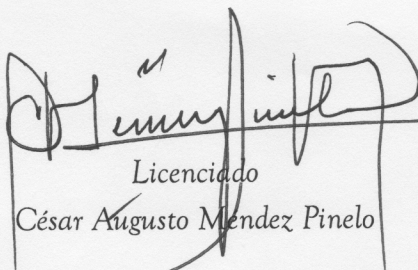 Licenciado
César Augusto Méndez Pinelo